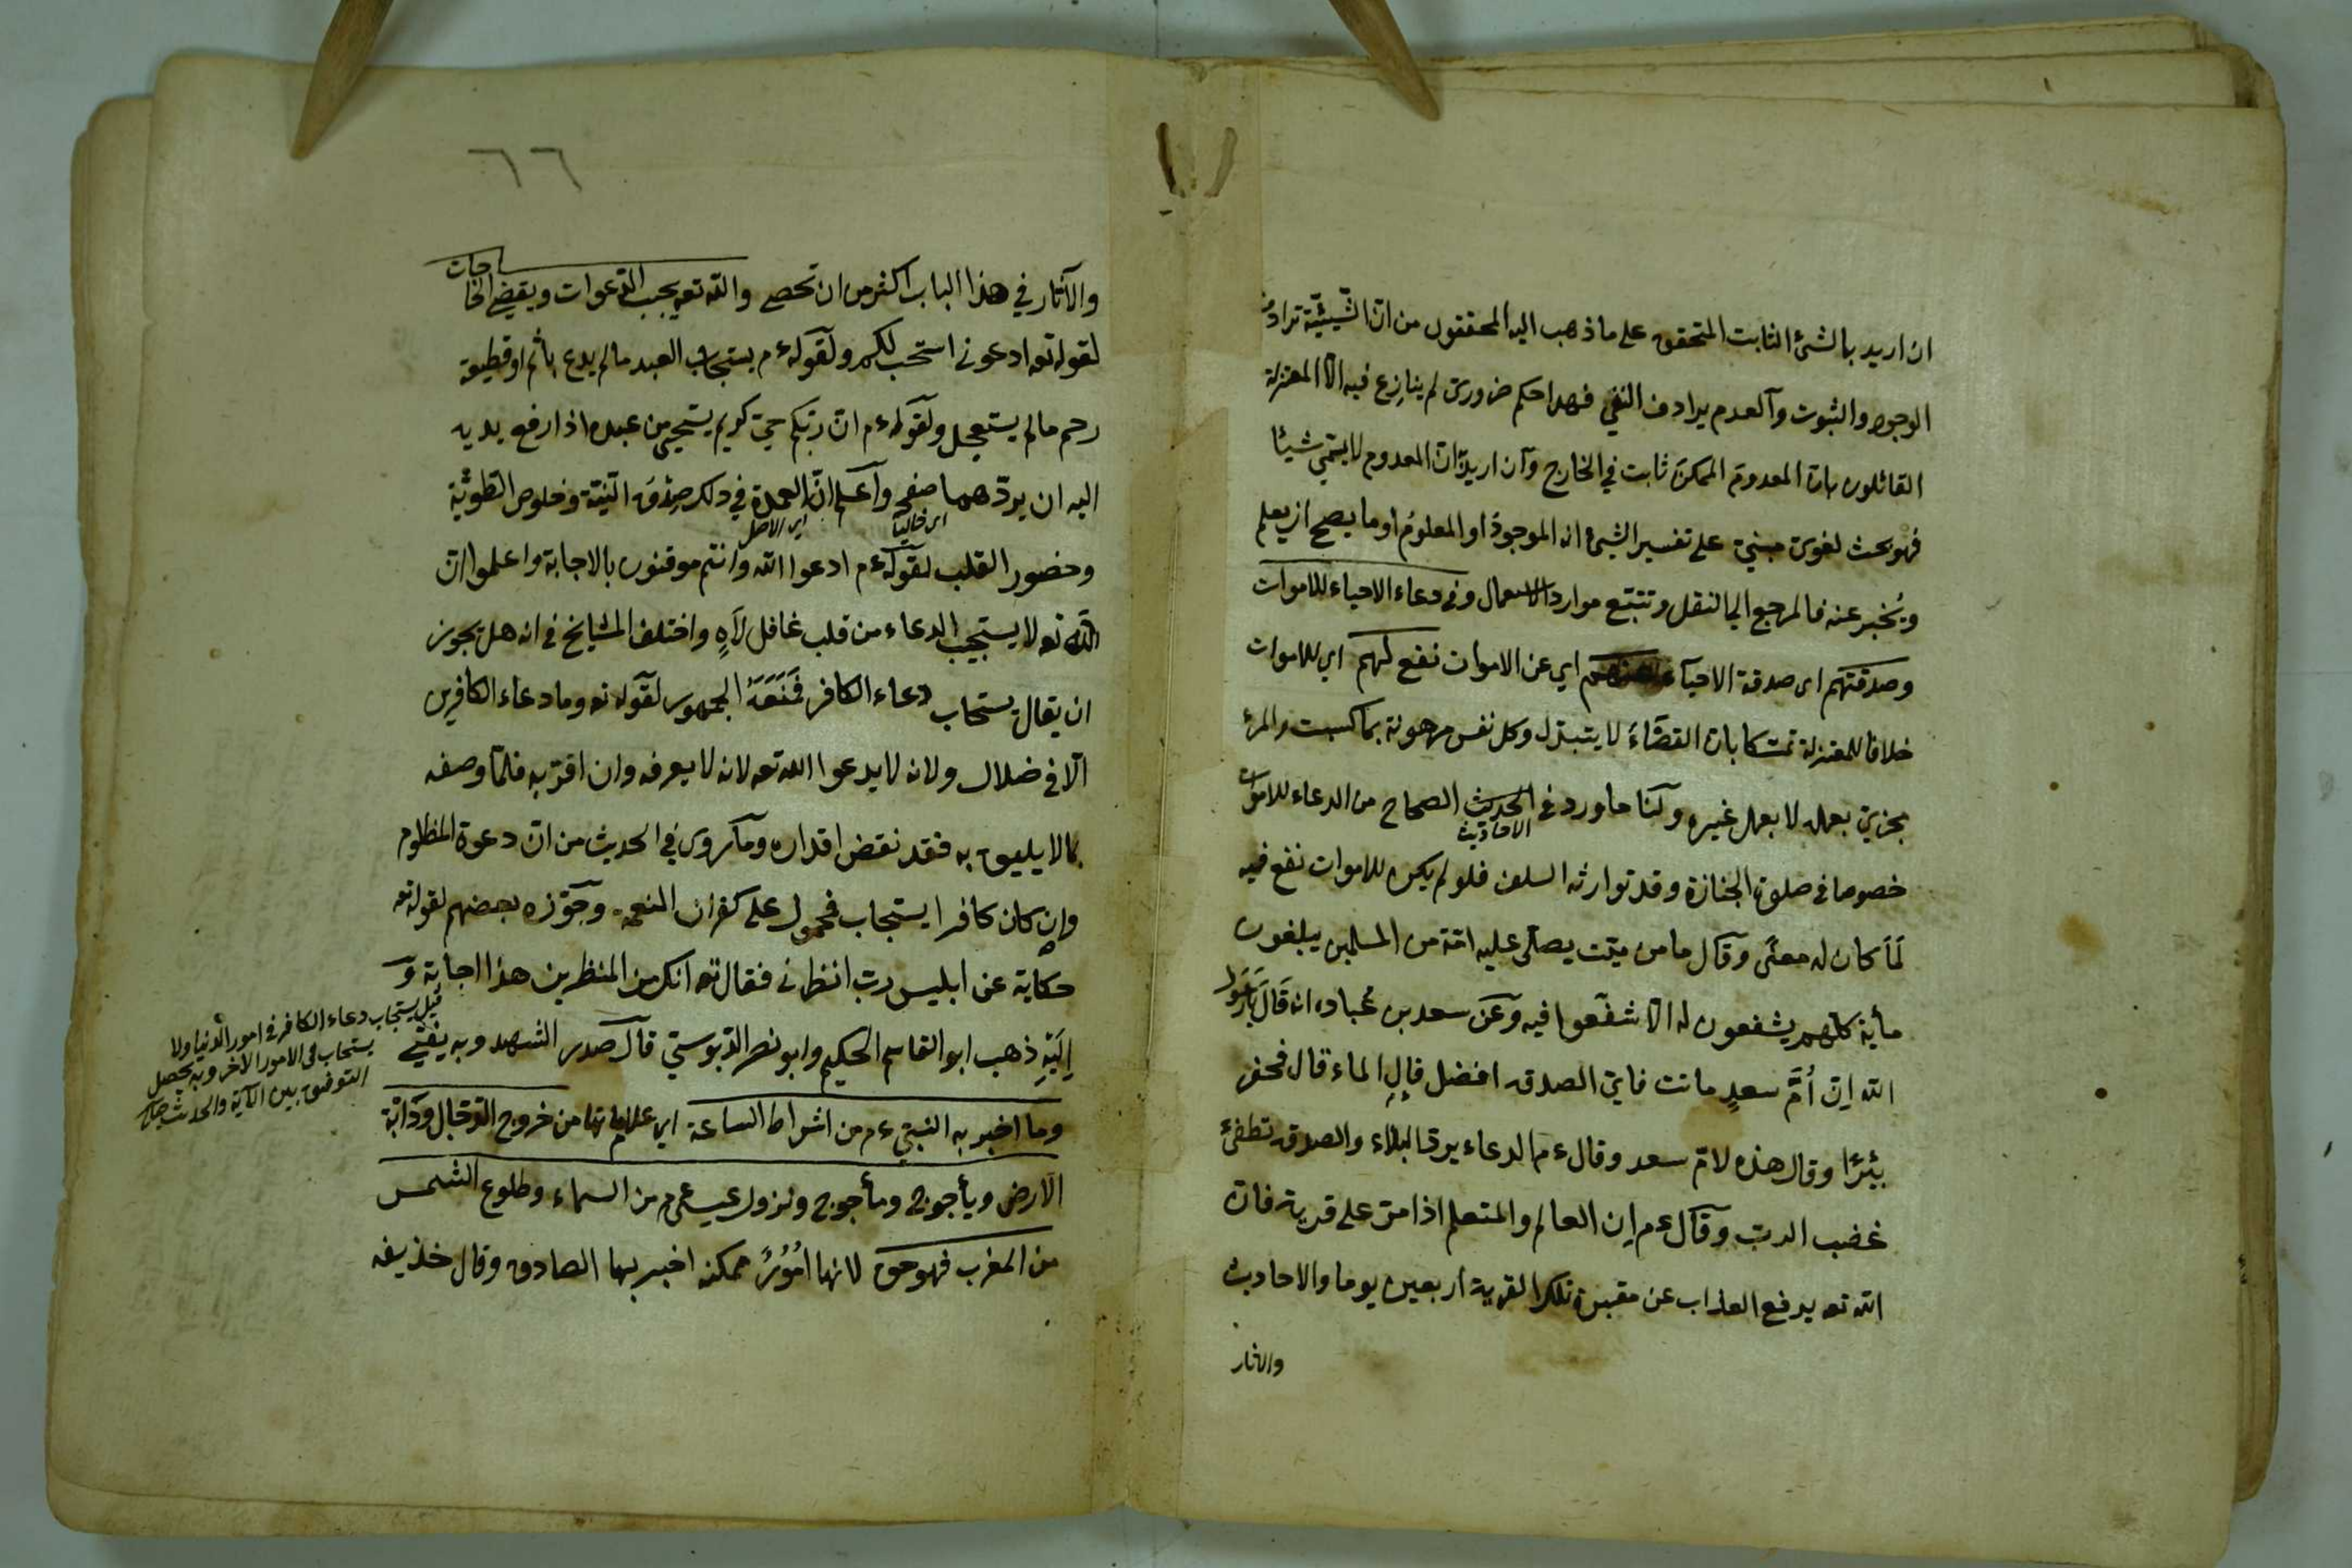 ان اريد بالشئ الثابت المتحقق على ما ذهب اليه المحققون من ان الشيئية ترادف
الوجود والثبوت والعدم يرادف النفى فهذا حكم ضرورى لم ينازع فيه الا المعتزلة
القائلون بان المعدوم الممكن ثابت في الخارج وان اريد ان المعدوم لا يسمى شيئا
فهو بحث لغوى مبنى على تفسير الشئ انه الموجود او المعلوم او ما يصح ان يعلم
ويخبر عنه فالمرجع الى النقل وتتبع موارد الاستعمال وفى دعاء الاحياء للاموات
وصدقتهم اى صدقة الاحياء عنهم اي عن الاموات نفع لهم اى للاموات
خلافا للمعتزلة تمسكا بان القضاء لا يتبدل وكل نفس مرهونة بما كسبت والمرء
مجزى بعمله لا بعمل غيره ولنا ما ورد في الحديث الصحاح من الدعاء للاموات
الاحاديث
خصوصا فى صلوة الجنازة وقد توارثه السلف فلو لم يكن للاموات نفع فيه
لما كان له معنى وقال ما من ميت يصلى عليه امة من المسلمين يبلغون
مأية كلهم يشفعون له الا شفعوا فيه وعن سعد بن عباده انه قال يا رسول
الله ان ام سعد ماتت فاى الصدقه افضل قال الماء قال فحفر
بئرا وقال هذه لام سعد وقال ءم الدعاء يرد البلاء والصدقه تطفئ
غضب الرب وقال ءم ان العالم والمتعلم اذا مر على قرية فان
الله تعه يرفع العذاب عن مقبرة تلك القرية اربعين يوما والاحاديث
والاثار
٦٦
والآثار في هذا الباب اكثر من ان تحصى والله تعه يجيب الدعوات ويقضى الحاجات
لقوله تعه ادعونى استجب لكم ولقوله ءم يستجاب العبد ما لم يدع باثم او قطيعة
رحم ما لم يستعجل ولقوله ءم ان ربكم حيى كريم يستحيى من عبده اذا رفع يديه
اليه ان يردهما صفرا واعلم ان العمدة في ذلك صدق النية وخلوص الطوية
اى خاليا اى الاصل
وحضور القلب لقوله ءم ادعوا الله وانتم موقنون بالاجابة واعلموا ان
الله تعه لا يستجيب الدعاء من قلب غافل لاه واختلف المشايخ فى انه هل يجوز
ان يقال يستجاب دعاء الكافر فمنعه الجمهور لقوله تعه وما دعاء الكافرين
الا فى ضلال ولانه لا يدعوا الله تعه لانه لا يعرفه وان اقر به فلما وصفه
بما لا يليق به فقد نقض اقراره وما روى في الحديث من ان دعوة المظلوم
وان كان كافرا يستجاب فمحمول على كفران النعمه وجوزه بعضهم لقوله تعه
حكاية عن ابليس رب انظرنى فقال تعه انك من المنظرين هذا اجابة و
اليه ذهب ابو القاسم الحكيم وابو نصر الدبوستي قال صدر الشهيد وبه يفتى
وما اخبر به النبي ءم من اشراط الساعة اى علاماتها من خروج الدجال ودابة
الارض ويأجوج ومأجوج ونزول عيسى ءم من السماء وطلوع الشمس
من المغرب فهو حق لانها امور ممكنه اخبر بها الصادق وقال حذيفه
قيل يستجاب دعاء الكافر فى امور الدنيا ولا
يستجاب فى الامور الاخر وبه يحصل
التوفيق بين الآية والحديث